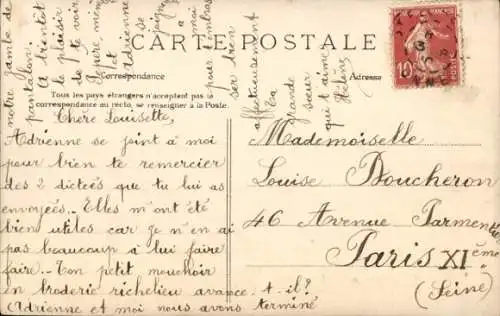 CARTE POSTALE
Correspondance
Adresse
Tous les pays étrangers n'acceptent pas la
correspondance au recto, se renseigner à la Poste.
10
Chère Louisette,
Adrienne se joint à moi
pour bien te remercier
des 2 dictées que tu lui as
envoyées.. Elles m'ont été
bien utiles car je n'en ai
pas beaucoup à lui faire
faire.- Ton petit mouchoir
en broderie richelieu avance-t-il?
(Adrienne et moi nous avons terminé
notre jambe de
pantalon.
A bientôt
le plaisir
de te voir
et
Adrienne se
joint à
moi
pour t'embras
ser bien
affectueusement
Ta
grande
sœur
qui t'aime
Hélène
Mademoiselle
Louise Boucheron
46 Avenue Parmentier
Paris XIème
(Seine)